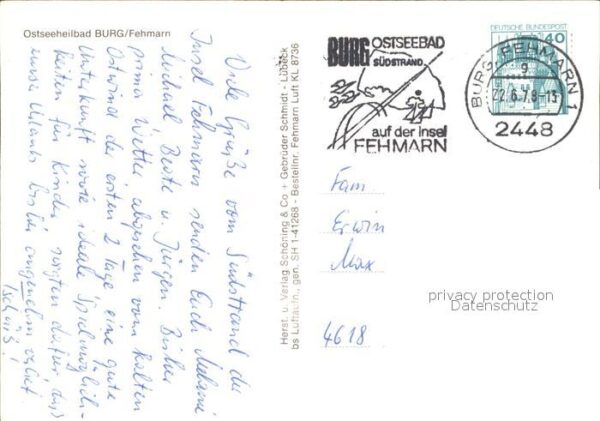 Ostseeheilbad BURG/Fehmarn
Viele Grüße vom Südstrand der
Insel Fehmarn senden Euch Melanie
Michael Beate u. Jürgen. Bisher
prima Wetter abgesehen vom kalten
Ostwind der ersten 2 Tage, eine gute
Unterkunft sowie ideale Spielmöglich-
keiten für Kinder sorgten dafür daß
unser Urlaub bisher angenehm verlief.
Tschüß!
Herst. u. Verlag Schöning & Co + Gebrüder Schmidt - Lübeck
bs Luftaufn., gen. SH 1-41268 - Bestellnr. Fehmarn Luft KL 8736
BURG OSTSEEBAD
SÜDSTRAND
auf der insel
FEHMARN
DEUTSCHE BUNDESPOST
40
BURG, FEHMARN 1
g
22.6.79-13
2448
Fam.
Erwin
Max
4618
privacy protection
Datenschutz